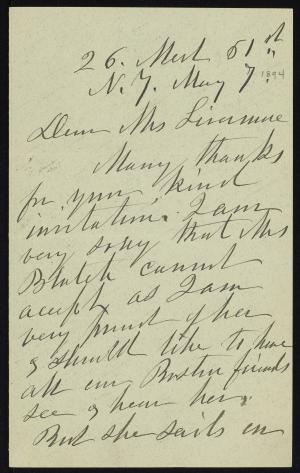 26. West 61st
N.Y. May 7th 1894
Dear Mrs Livermore
Many thanks
for your kind
invitation. I am
very sorry that Mrs
cannot
accept as I am
very proud of her
& should like to have
all our Boston friends
see & hear her.
But she sails on